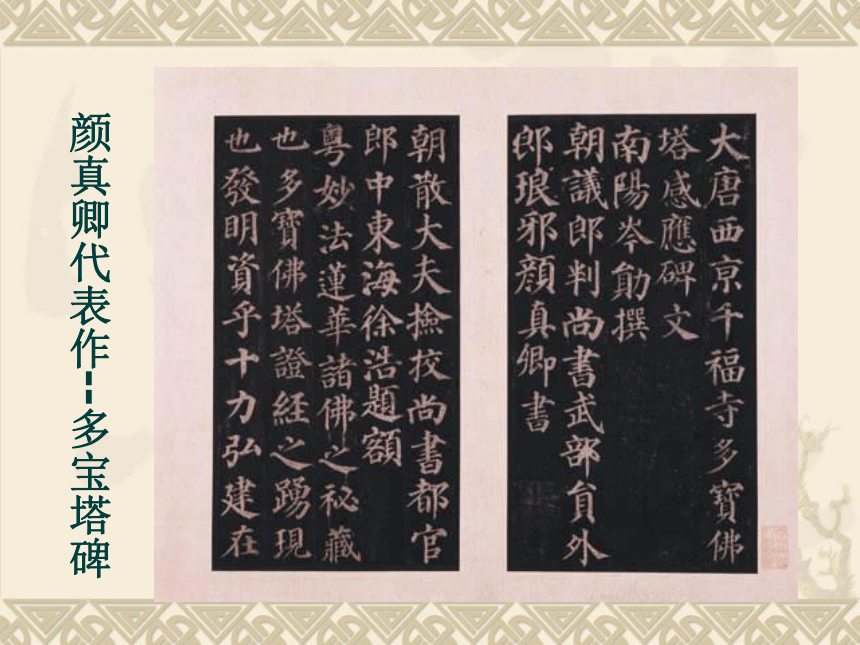 颜真卿代表作--多宝塔碑
大唐西京千福寺多寶佛
塔感應碑文
南陽岑勛撰
朝議郎判尚書武部貟外
郎琅邪顔真卿書
朝散大夫撿挍尚書都官
郎中東海徐浩題額
粵妙法蓮華諸佛之祕藏
也多寶佛塔證經之踴現
也發明資乎十力弘建在